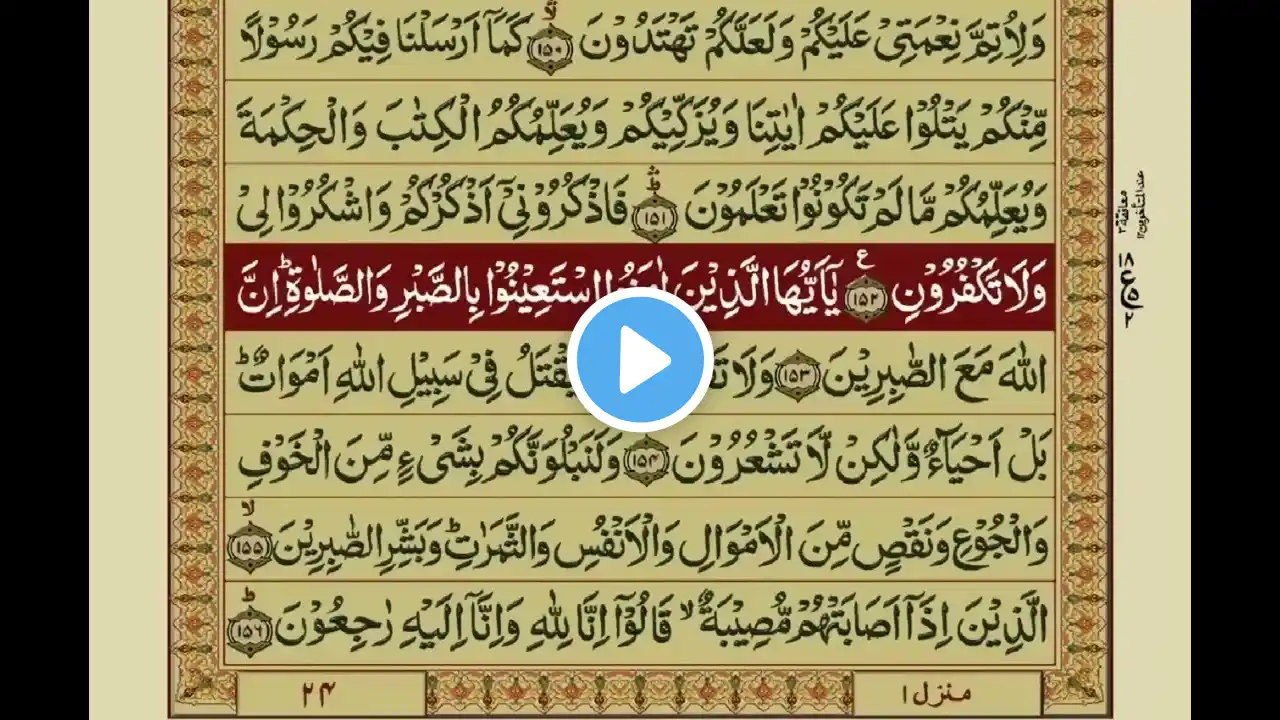 وَلِاُتِمَّ نِعْمَتِىْ عَلَيْكُمْ وَلَعَلَّكُمْ تَهْتَدُوْنَ ۙ﴿۱۵۰﴾ كَمَاۤ اَرْسَلْنَا فِيْكُمْ رَسُوْلًا
مِّنْكُمْ يَتْلُوْا عَلَيْكُمْ اٰيٰتِنَا وَيُزَكِّيْكُمْ وَيُعَلِّمُكُمُ الْكِتٰبَ وَالْحِكْمَةَ
وَيُعَلِّمُكُمْ مَّا لَمْ تَكُوْنُوْا تَعْلَمُوْنَ ؕۛ﴿۱۵۱﴾ فَاذْكُرُوْنِىْۤ اَذْكُرْكُمْ وَاشْكُرُوْا لِىْ
وَلَا تَكْفُرُوْنِ ﴿۱۵۲﴾ع يٰۤاَيُّهَا الَّذِيْنَ اٰمَنُوا اسْتَعِيْنُوْا بِالصَّبْرِ وَالصَّلٰوةِ ؕ اِنَّ
اللّٰهَ مَعَ الصّٰبِرِيْنَ ﴿۱۵۳﴾ وَلَا يُّقْتَلُ فِىْ سَبِيْلِ اللّٰهِ اَمْوَاتٌ ؕ
بَلْ اَحْيَآءٌ وَّلٰكِنْ لَّا تَشْعُرُوْنَ ﴿۱۵۴﴾ وَلَنَبْلُوَنَّكُمْ بِشَىْءٍ مِّنَ الْخَوْفِ
وَالْجُوْعِ وَنَقْصٍ مِّنَ الْاَمْوَالِ وَالْاَنْفُسِ وَالثَّمَرٰتِ ؕ وَبَشِّرِ الصّٰبِرِيْنَ ۙ﴿۱۵۵﴾
الَّذِيْنَ اِذَاۤ اَصَابَتْهُمْ مُّصِيْبَةٌ ۙ قَالُوْۤا اِنَّا لِلّٰهِ وَاِنَّاۤ اِلَيْهِ رٰجِعُوْنَ ؕ﴿۱۵۶﴾
منزل ۱
۲۴
معانقة ۲
عند المتأخرين ۱۲
۱۸
ع
۲